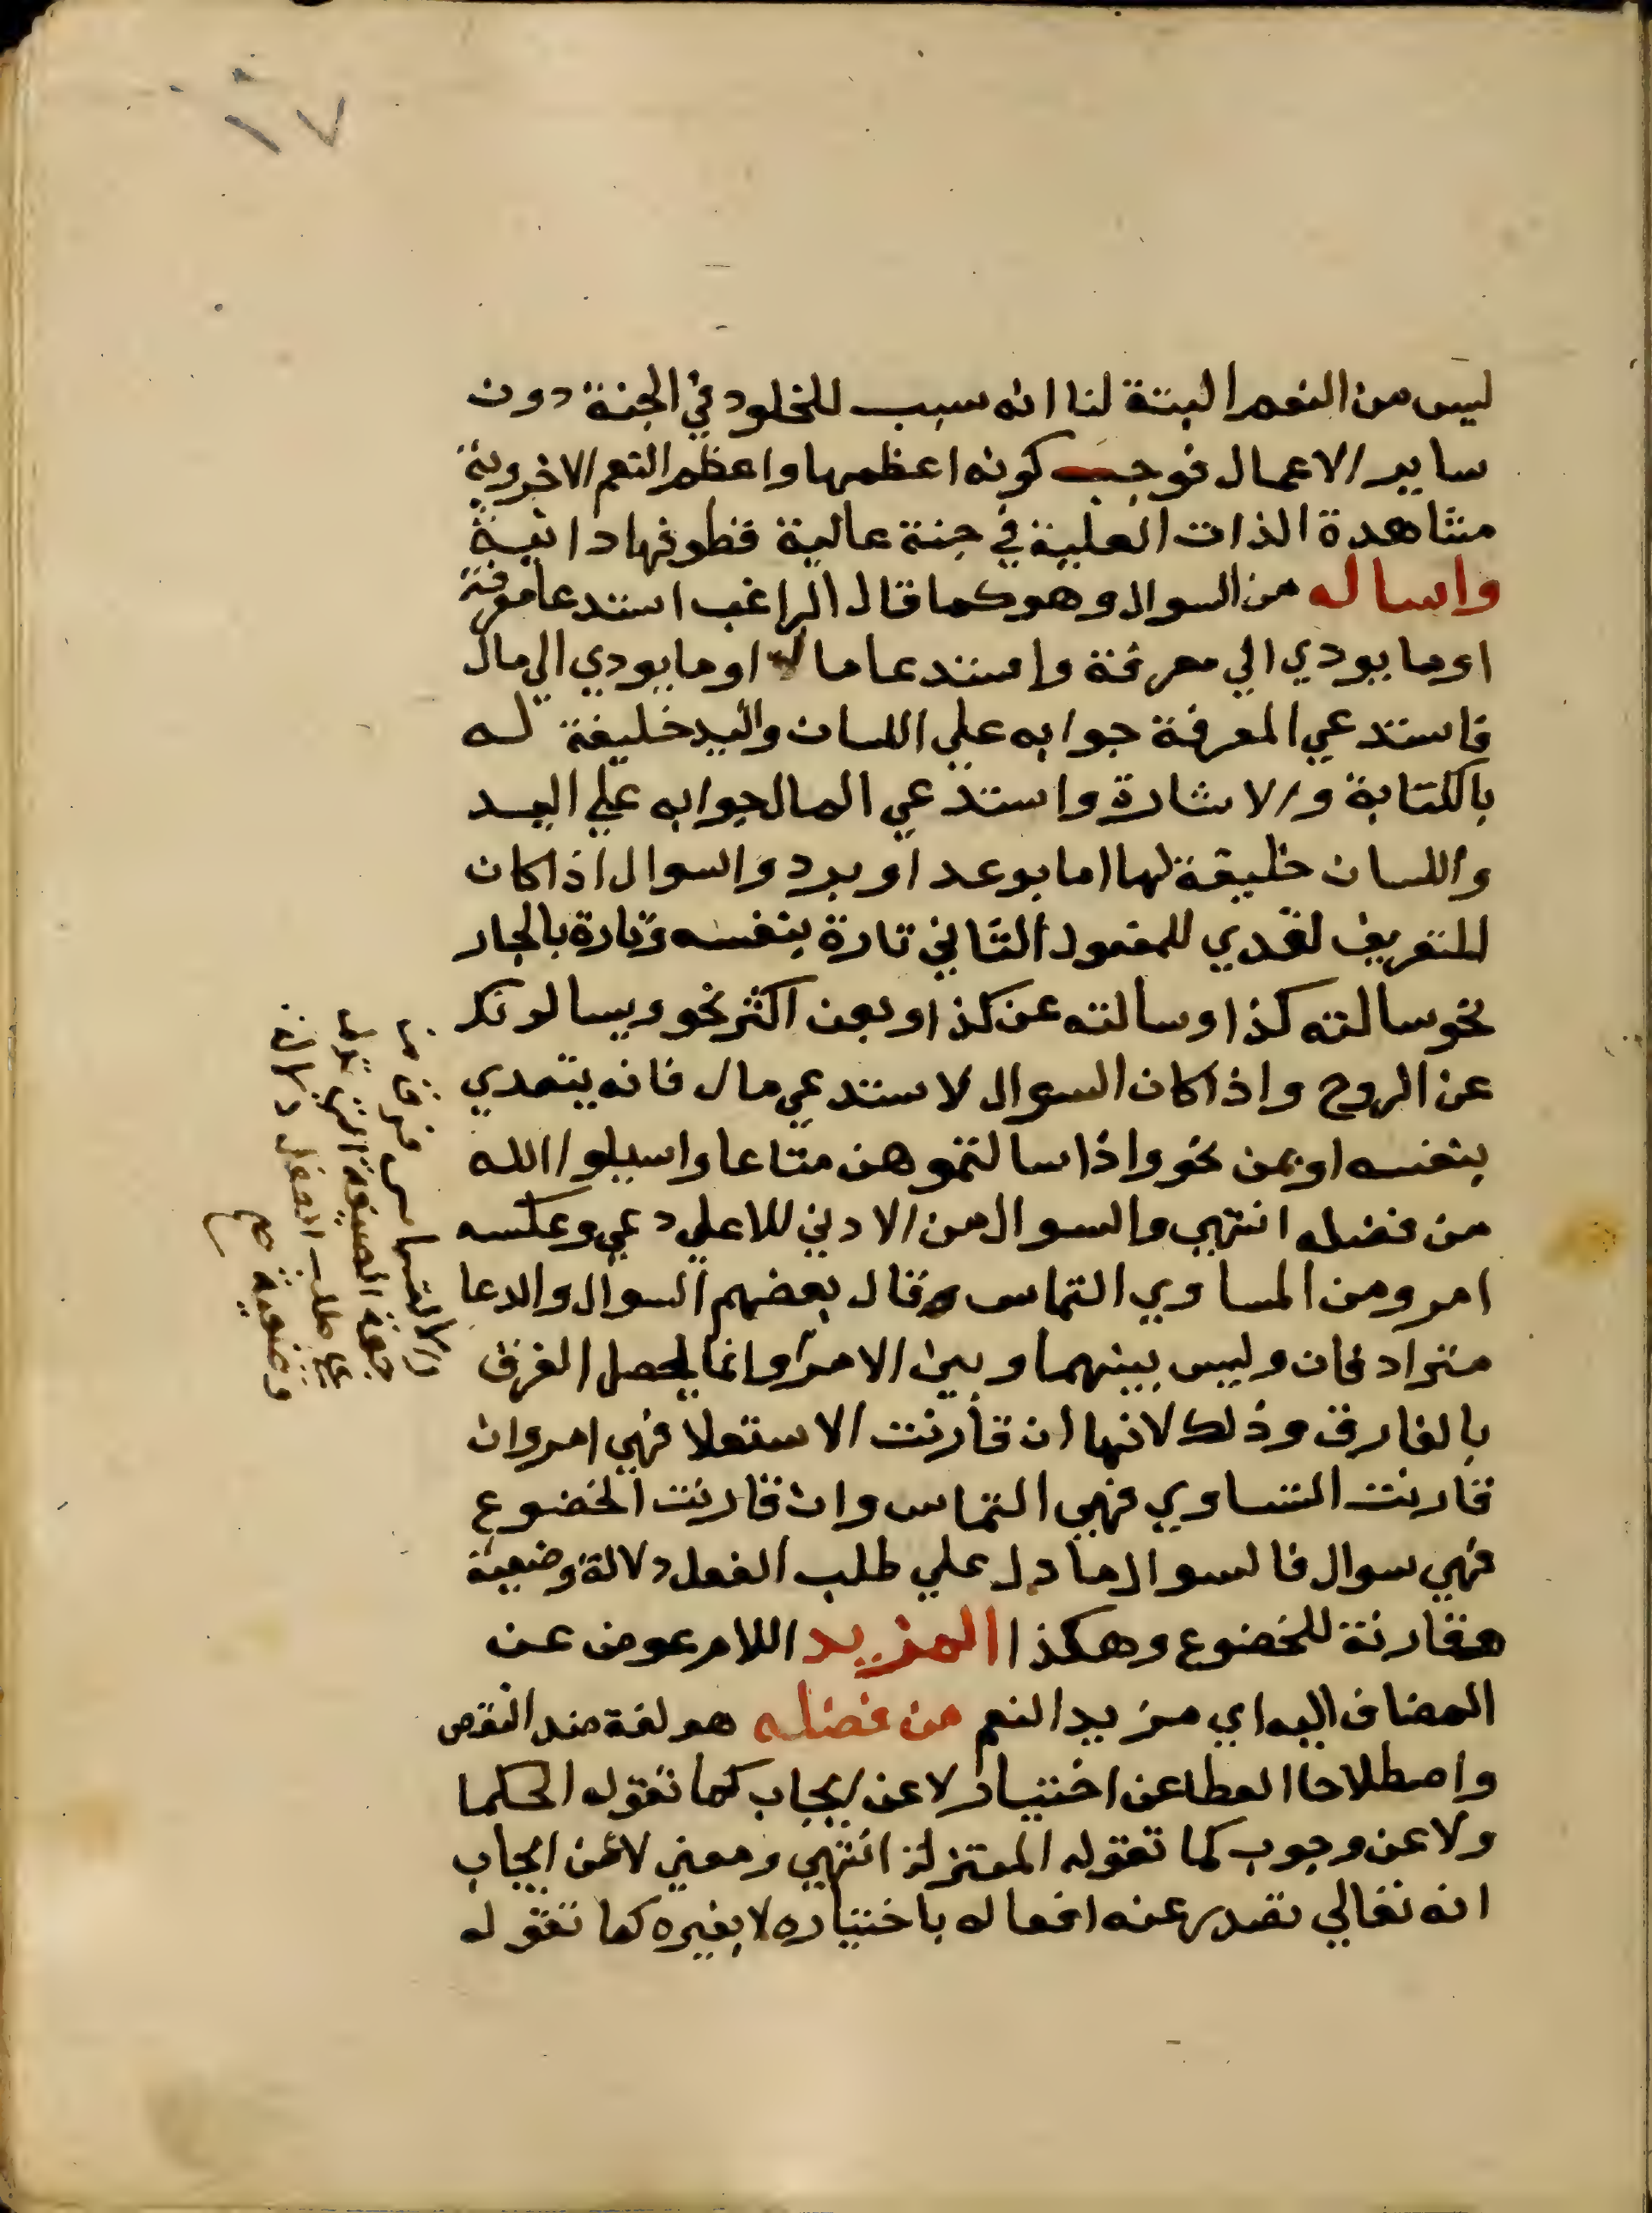 ١٧
ليس من النعم البتة لنا انه سبب للخلود في الجنة دون
ساير الاعمال فوجب كونه اعظمها واعظم النعم الاخروية
مشاهدة الذات العلية في جنة عالية قطوفها دانية
واساله من السوال وهو كما قال الراغب استدعا معرفة
او ما يودي الي معرفة واستدعا مال او ما يودي الي مال
فاستدعي المعرفة جوابه علي اللسان واليد خليفة له
بالكتابة والاشارة واستدعي المال جوابه علي اليد
واللسان خليفة لها اما بوعد او برد والسوال اذا كان
للتعريف تعدي للمفعول الثاني تارة بنفسه وتارة بالجار
نحو سالته كذا وسالته عن كذا وبعن اكثر نحو ويسالونك
عن الروح واذا كان السوال لاستدعي مال فانه يتعدي
بنفسه او بمن نحو واذا سالتموهن متاعا واسيلوا الله
من فضله انتهي والسوال من الادني للاعلي دعي وعكسه
امر ومن المساوي التماس وقال بعضهم السوال والدعا
مترادفان وليس بينهما وبين الامر وانما يحصل الفرق
بالفارق وذلك لانها ان قارنت الاستعلا فهي امر وان
قارنت التساوي فهي التماس وان قارنت الخضوع
فهي سوال فالسوال ما دل علي طلب الفعل دلالة وضعية
مقارنة للخضوع وهكذا المزيد اللام عوض عن
المضاف اليه اي مزيد النعم من فضله هو لغة ضد النقص
واصطلاحا العطا عن اختيار لا عن ايجاب كما تقوله الحكما
ولا عن وجوب كما تقوله المعتزلة انتهي ومعني لا عن ايجاب
انه تعالي تصدر عنه افعاله باختياره لا بغيره كما تقوله
والالتماس فرق من
جهة الصيغة التي تدل
علي طلب الفعل دلالة
وضعية صح